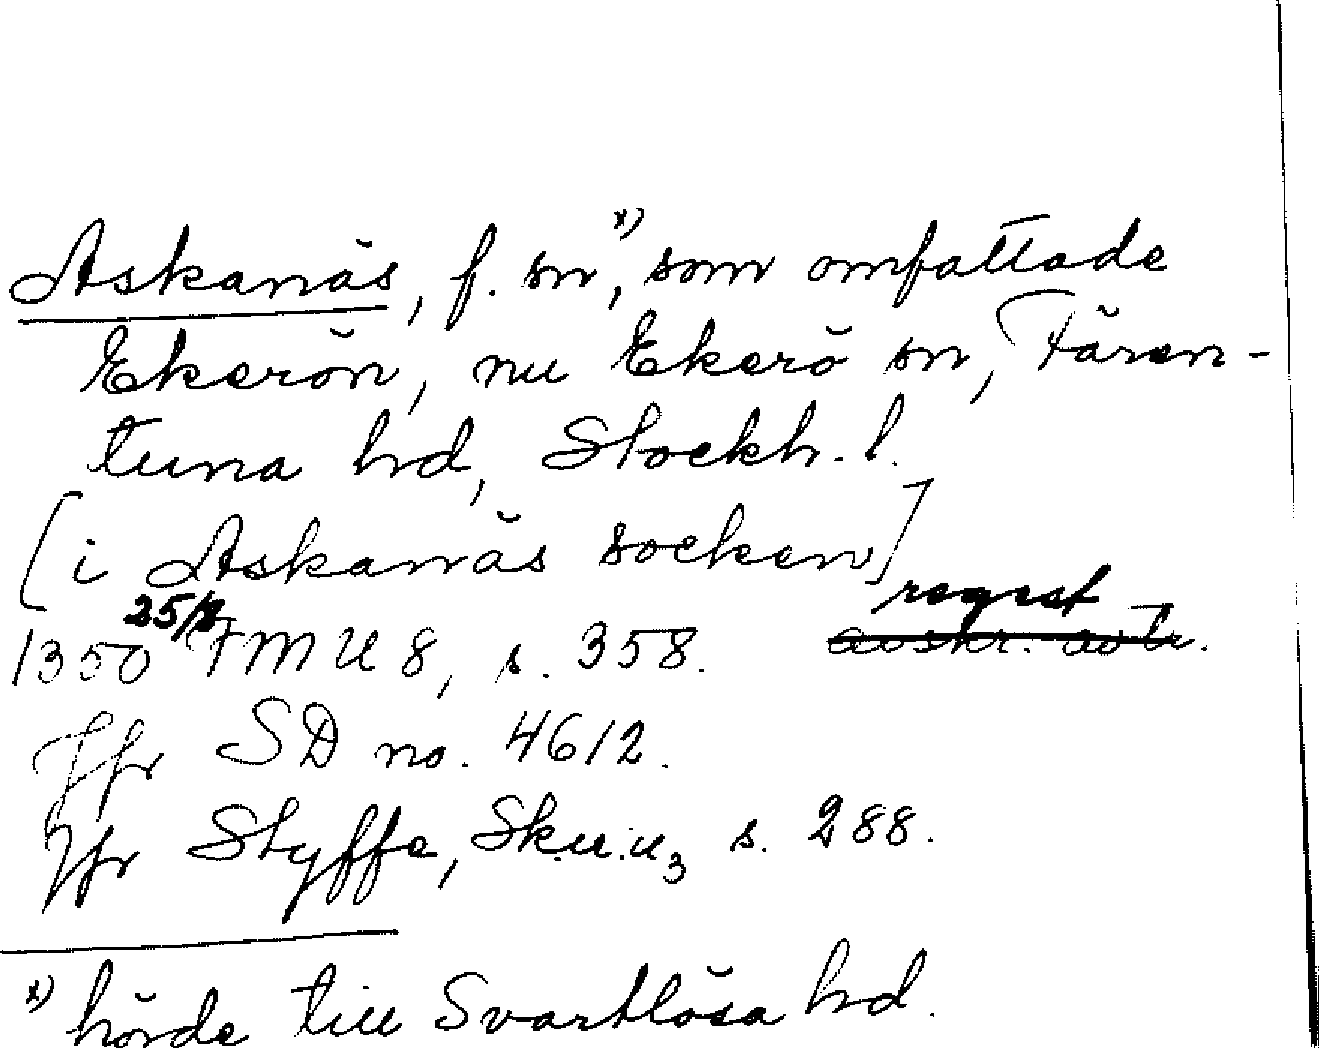 Askanäs, f. sn x), som omfattade
Ekerön, nu Ekerö sn, Fären-
tuna hd, Stockh. l.
[i Askanäs socken]
regest
1350 25/2 FMU 8, s. 358. avskr. avtr.
Jfr SD no. 4612.
Jfr Styffe, Sk.u.u3 s. 288.
x) hörde till Svartlösa hd.